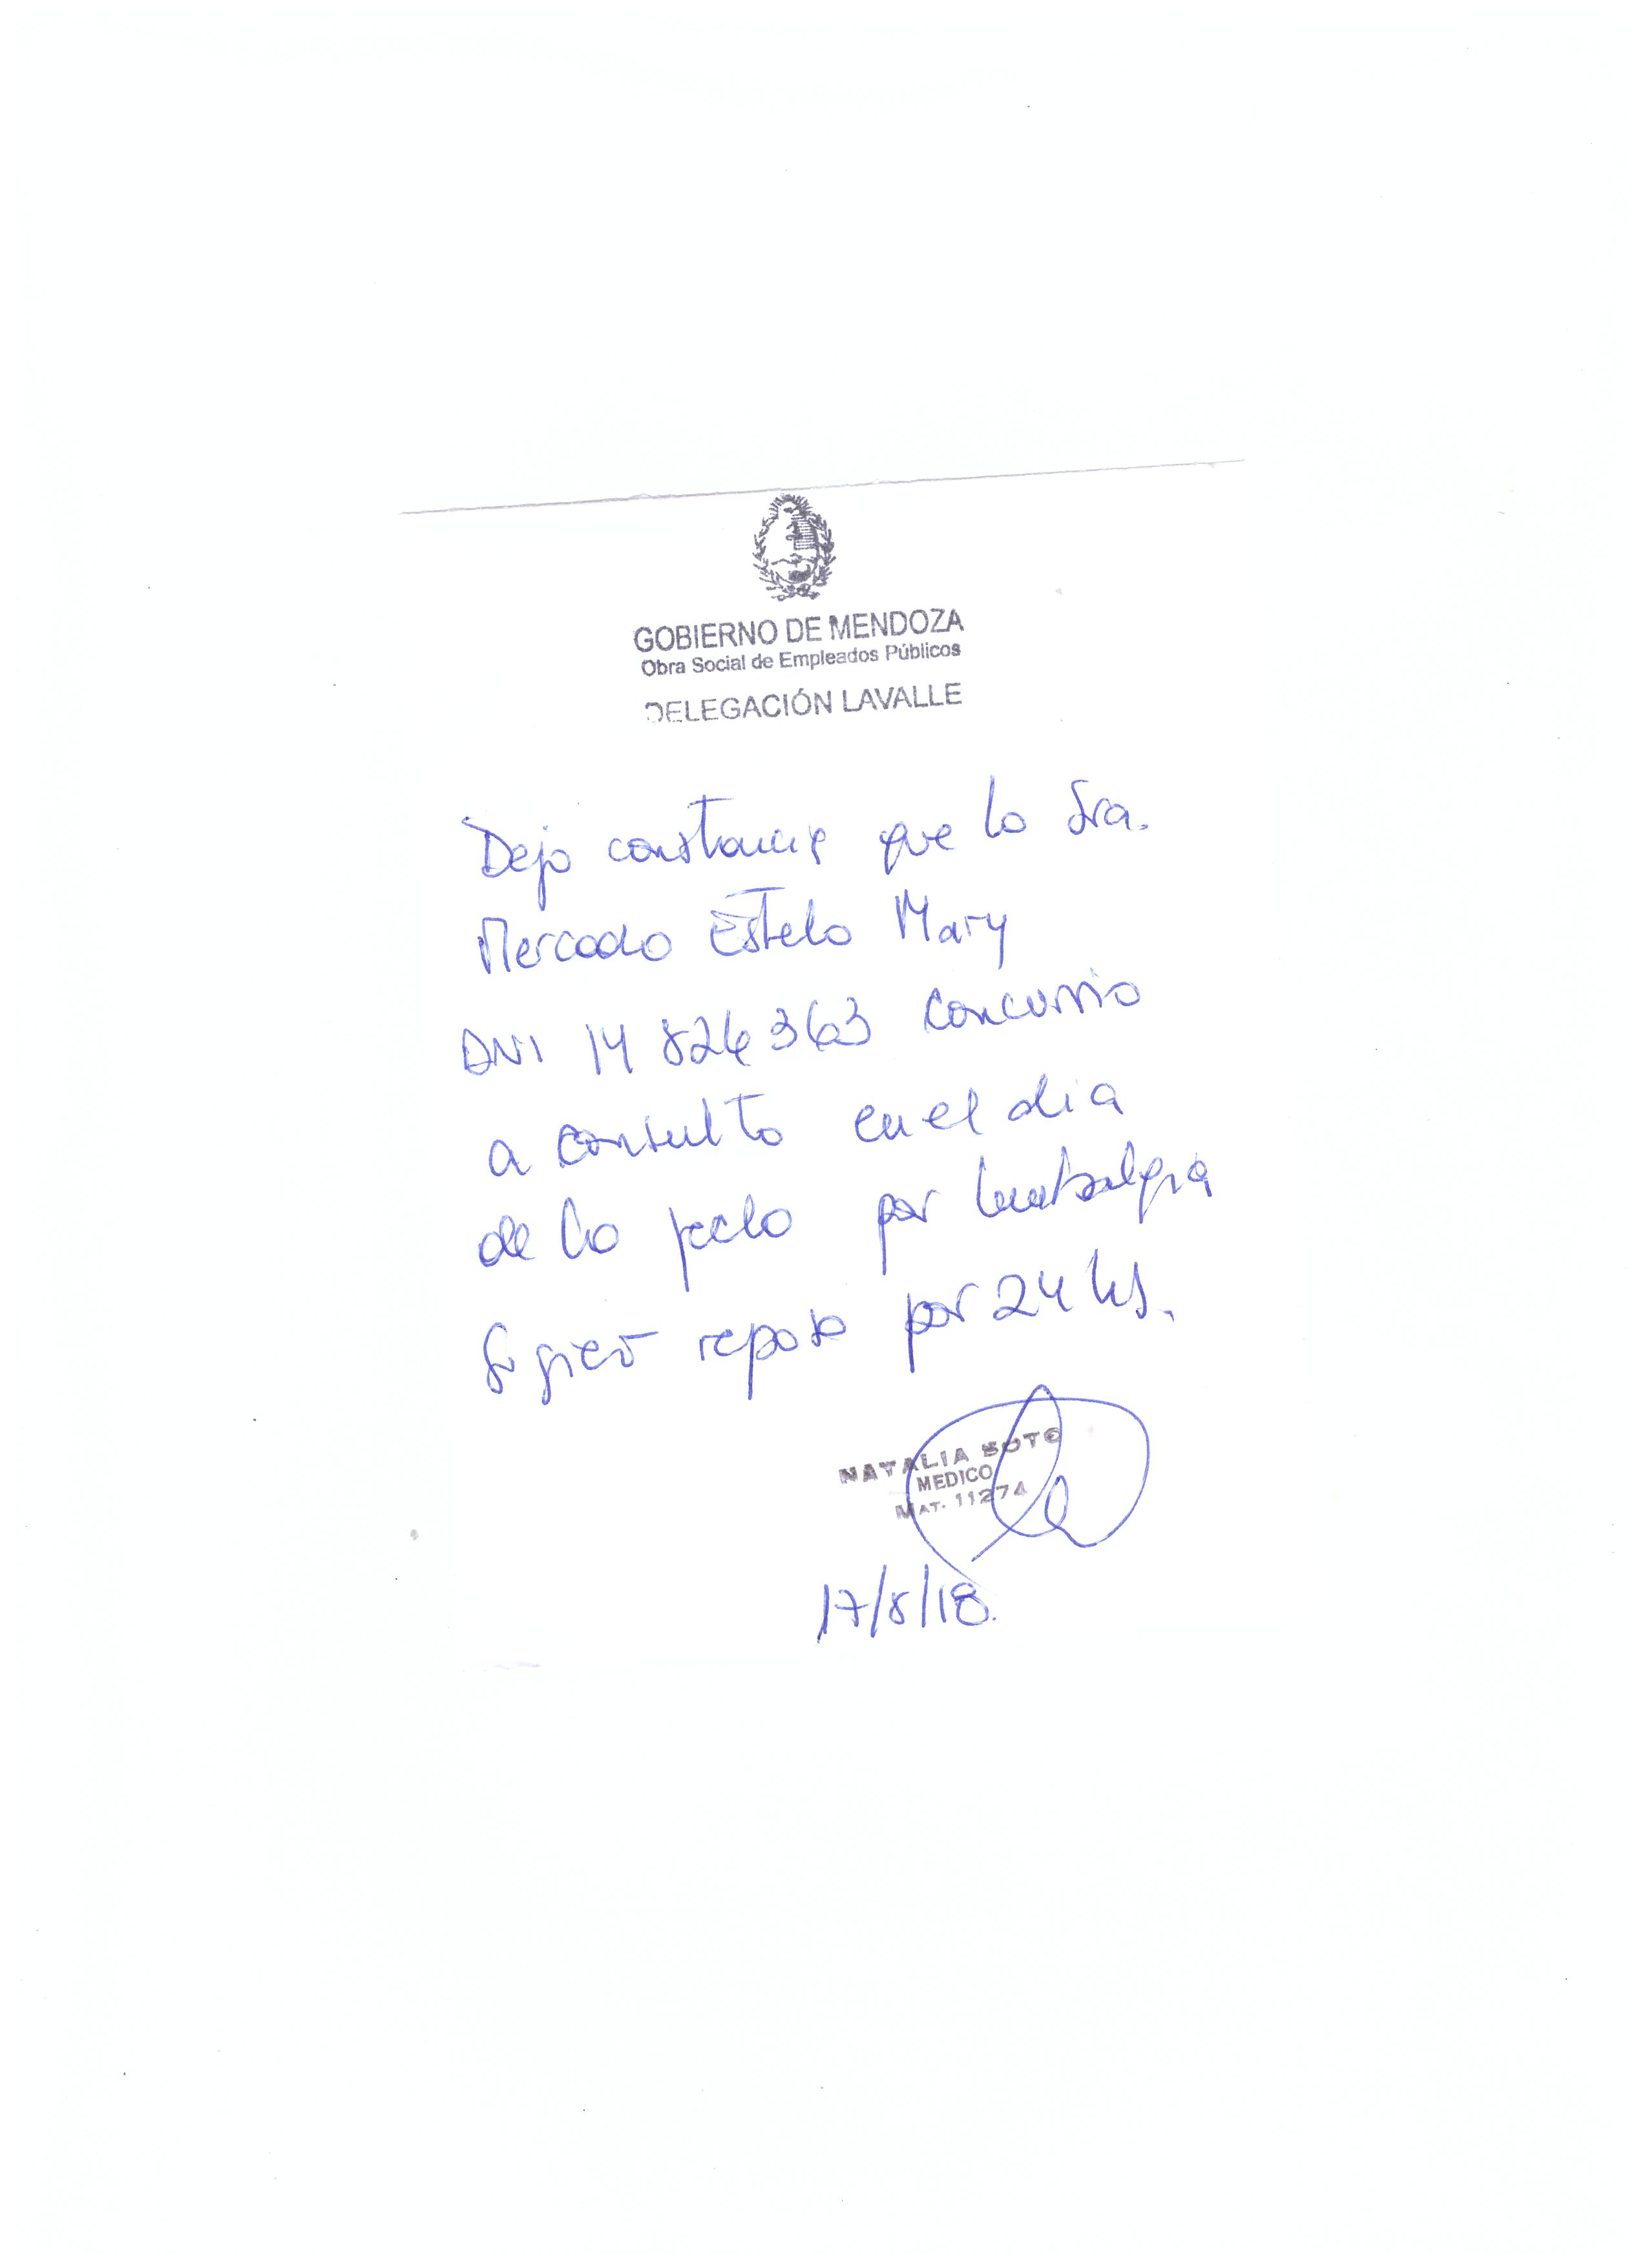 GOBIERNO DE MENDOZA
Obra Social de Empleados Públicos
DELEGACIÓN LAVALLE
Dejo constancia que la Sra.
Mercado Estela Mary
DNI 14826363 concurrió
a consulta en el dia
de la fecha por lumbalgia
Sugiero reposo por 24 hs.
NATALIA SOTO
MEDICO
MAT. 11274
17/8/18.